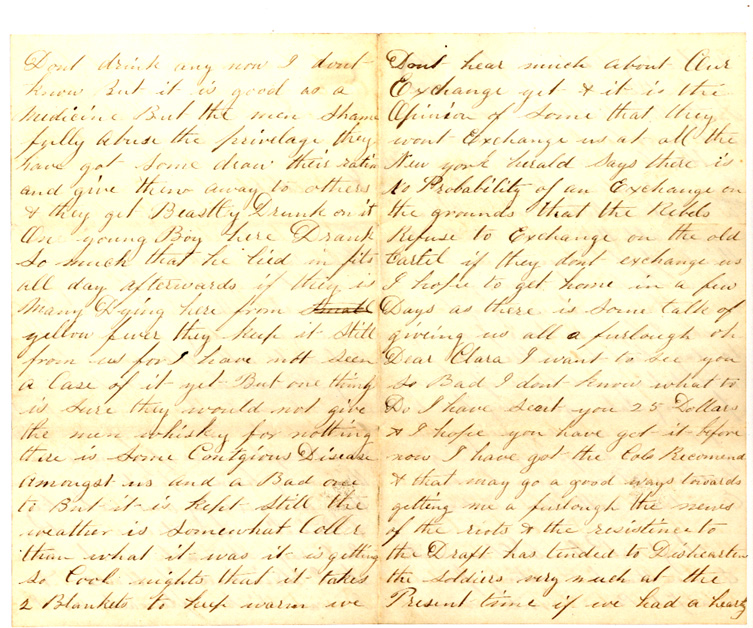 Dont drink any now I dont
know But it is good as a
Medicine But the men shame
fully abuse the privelage they
have got some draw their ratin
and give them away to others
& they get Beastly Drunk on it
One young Boy here Drank
So much that he lied in fits
all day afterwards if they is
Many Dying here from Small
yellow fever they keep it still
from us for I have not seen
a Case of it yet But one thing
is sure they would not give
the men whiskey for nothing
there is Some Contgious Disease
Amongst us and a Bad one
to But it is kept still the
weather is somewhat Coller
than what it was it is getting
so Cool nights that it takes
2 Blankets to keep warm we
Dont hear much about Our
Exchange yet & it is the
Opinion of Some that they
wont Exchange us at all the
New york herald Says there is
No Probability of an Exchange on
the grounds that the Rebels
Refuse to Exchange on the old
Cartel if they dont exchange us
I hope to get home in a few
Days as there is some talk of
giveing us all a furlough oh
Dear Clara I want to see you
so Bad I dont know what to
Do I have sent you 25 Dollars
& I hope you have got it before
now I have got the Cols Recomend
& that may go a good ways towards
getting me a furlough the news
of the riots & the resistince to
the Draft has tended to Dishearten
the soldiers very much at the
Present time if we had a hearty